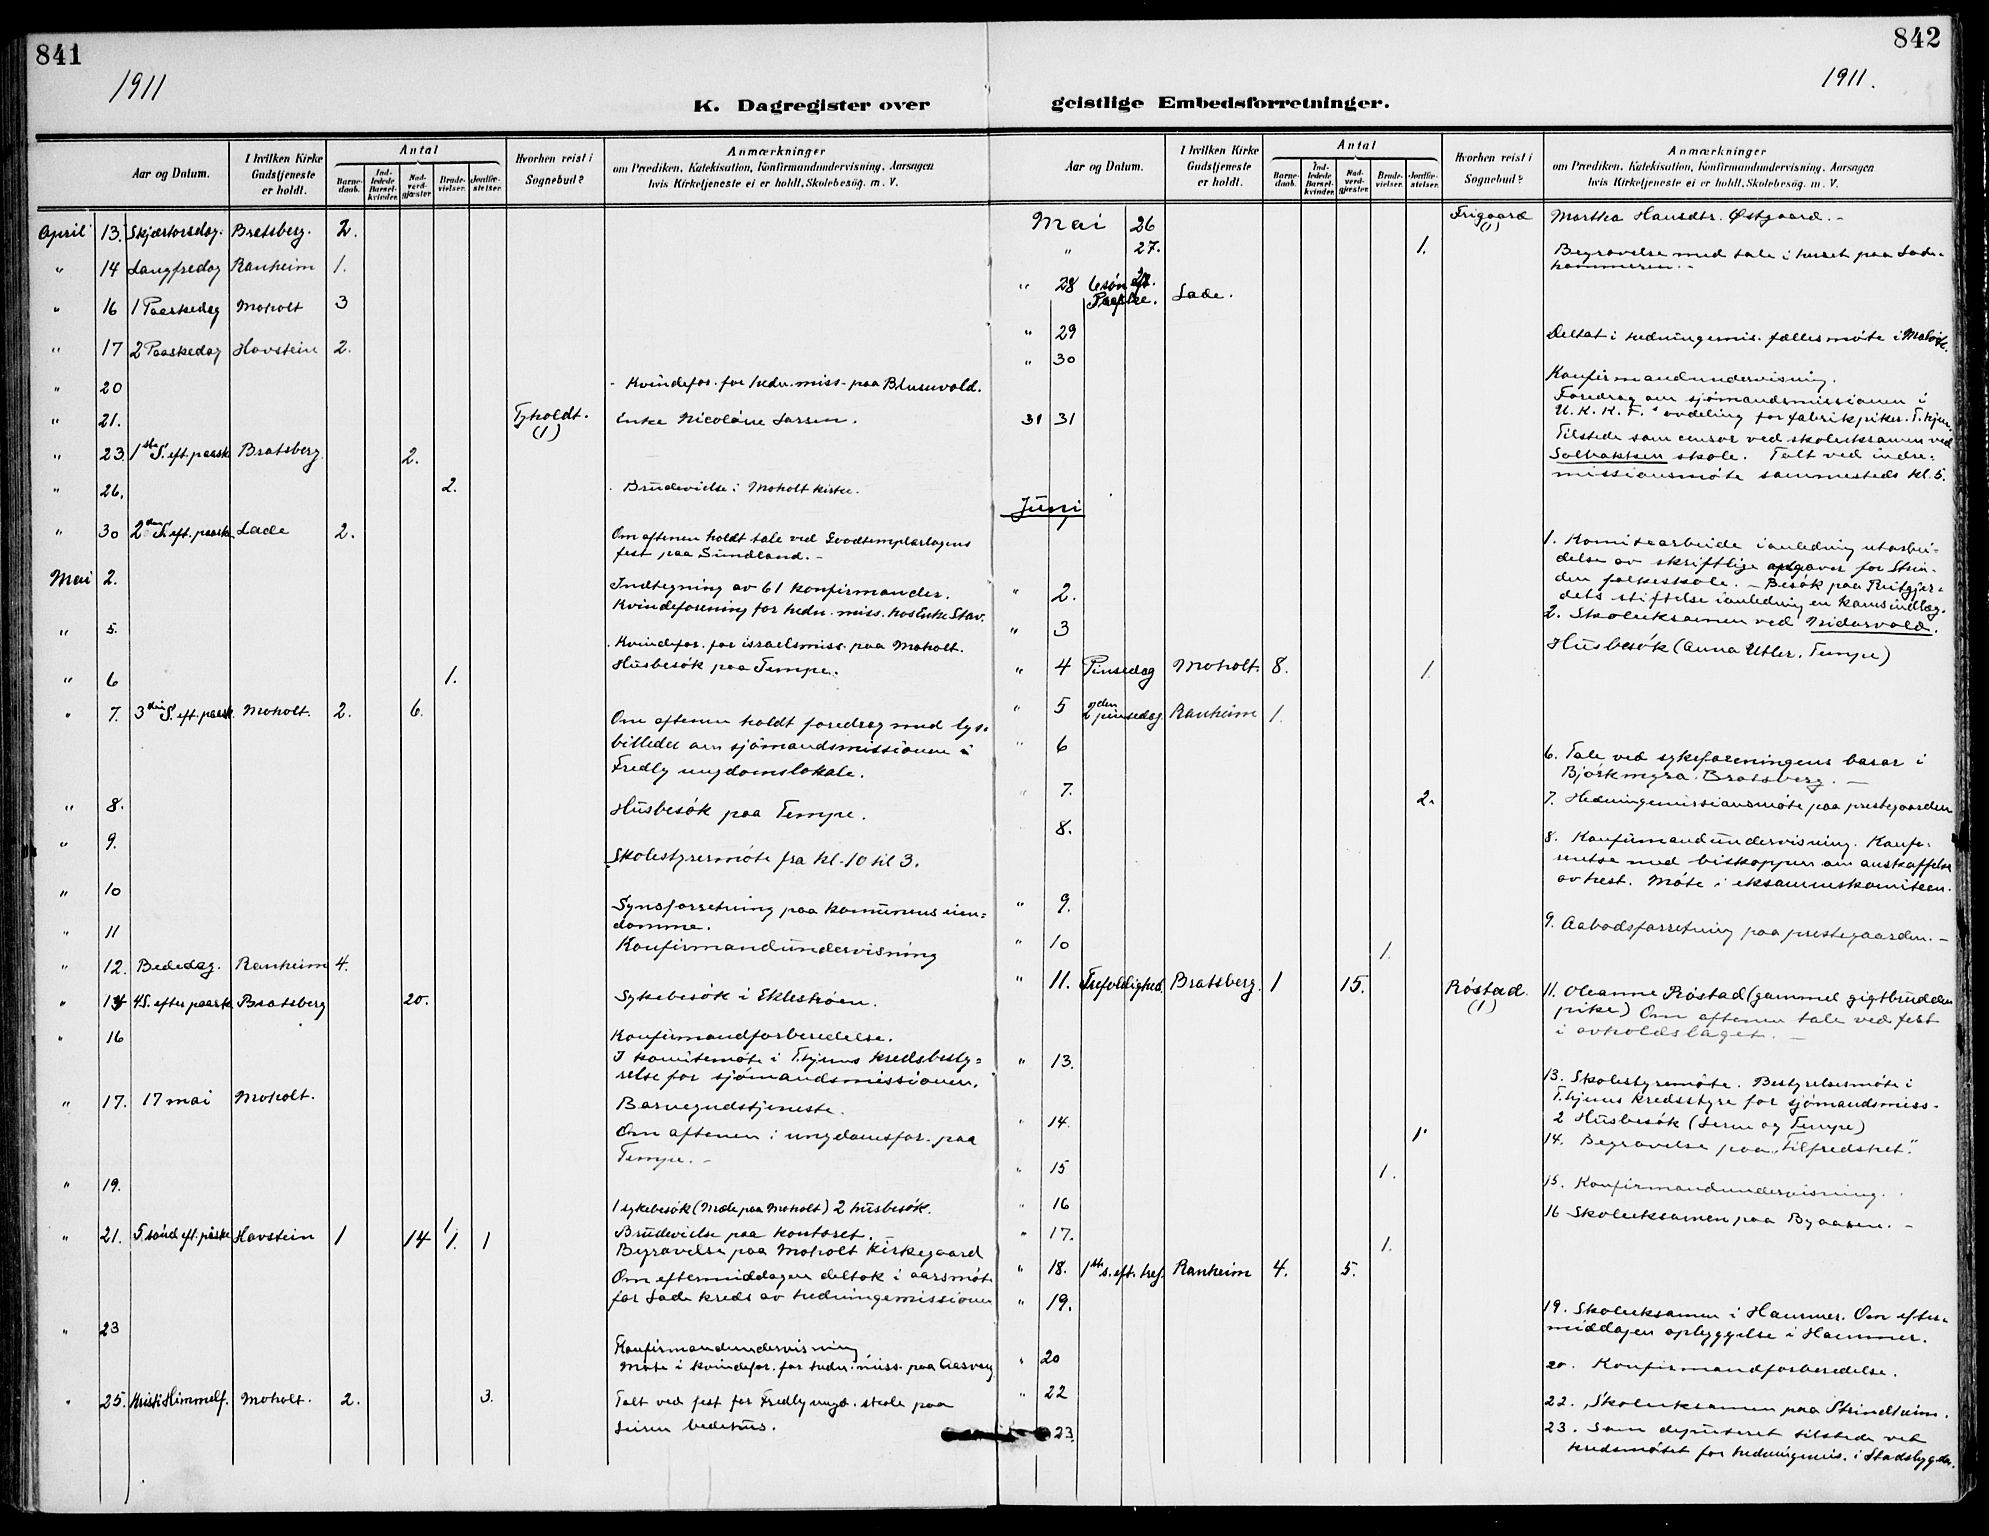 841
1911
K. Dagregister over
Aar og Datum. I hvilken Kirke Gudstjeneste er holdt. Antal Barne-daab. Ind-ledede Barsel-kvinder. Nad-verd-gjæster. Brude-vielser. Jordfæ-stelser. Hvorhen reist i Sognebud? Anmærkninger
om Prædiken, Katekisation, Konfirmandundervisning, Aarsagen
hvis Kirketjeneste ei er holdt, Skolebesög. m. V.
April 13. Skjærtorsdag. Bratsberg. 2.
" 14 Langfredag Ranheim 1.
" 16 1 Paaskedag Moholt 3
" 17 2 Paaskedag Havstein 2.
" 20 Kvindefor. for hedn. miss. paa Blusuvold.
" 21. Tyholdt. (1) Enke Nicoline Larsen.
" 23 1ste S. eft. paask Bratsberg. 2.
" 26. 2. Brudevielse i Moholt kirke.
" 30 2den S. eft. paask. Lade 2. Om aftenen holdt tale ved Goodtemplarlagens
fest paa Sundland. -
Mai 2. Indtegning av 61 konfirmander.
Kvindeforening for hedn. miss. hos Enke Stav.
" 5. Kvindefor. for israelsmiss. paa Moholt.
Husbesøk paa Tempe.
" 6 1.
" 7. 3die S. eft. paask. Moholt. 2. 6.
Om aftenen holdt foredrag med lys-
billeder om sjømandsmissionen i
Fredly ungdomslokale.
" 8. Husbesøk paa Tempe.
" 9. Skolestyremøte fra kl. 10 til 3.
" 10 Synsforretning paa komunens eien=
domme.
" 11 Konfirmandundervisning
" 12. Bededag. Ranheim 4.
" 14 4 S. efter paask Bratsberg 20. Sykebesøk i Eklestrøen.
" 16 Konfirmandforberedelse.
I komitemøte i T.hjems kredsbesty=
relse for sjømandsmissionen.
" 17. 17 mai Moholt. Barnegudstjeneste.
Om aftenen i ungdomsfor. paa
Tempe. -
" 19. 1 sykebesøk (Mæle paa Moholt) 2 husbesøk.
1. Brudevielse paa kontoret. -
" 21. 5. sønd eft. påske Havstein 1 14 1. 1 Begravelse paa Moholt kirkegaard
Om eftermiddagen deltok i aarsmøte
for Lade kreds av hedningemissionen
" 23 Konfirmandundervisning
Møte i kvindefor. for hedn. miss. paa Aasvang
" 25. Kristi Himmelf. Moholt. 2. 3. Talt ved fest for Fredly ungd. skole paa
Leiren bedehus.
842
1911.
geistlige Embedsforretninger.
Aar og Datum. I hvilken Kirke Gudstjeneste er holdt. Antal Barne-daab. Ind-ledede Barsel-kvinder. Nad-verd-gjæster. Brude-vielser. Jordfæ-stelser. Hvorhen reist i Sognebud? Anmærkninger
om Prædiken, Katekisation, Konfirmandundervisning, Aarsagen
hvis Kirketjeneste ei er holdt, Skolebesög. m. V.
Mai 26 Frigaard (1) Martha Hansdtr. Østgaard. -
" 27. 1. Begravelse med tale i huset paa Lade-
hammeren. -
" 28 6 søn. eft. Paaske. Lade.
" 29 Deltat i hedningemis. fællesmøte i Malvik.
" 30 Konfirmandundervisning.
Foredrag om sjømandsmissionen i
31 31 U.K.K.F.s avdeling for fabrikpiker. T.hjem.
Tilstede som censor ved skoleeksamen ved
Solbakken skole. Talt ved indre=
missionsmøte sammesteds kl. 5.
Juni
1. Komitearbeide i anledning utarbei-
delse av skriftlige opgaver for Strin-
den folkeskole. - Besøk paa Ritzjer-
dets stiftelse i anledning en barnsindlæg.
" 2. 2. Skoleeksamen ved Nidarvold.
" 3 Husbesøk (Anna Utler. Tempe)
" 4 Pinsedag Moholt. 8. 1.
" 5 2den pinsedag Ranheim 1.
" 6 6. Tale ved sykeforeningens basar i
Bjørkmyra. Bratsberg. -
" 7. 2. 7. Hedningemissionsmøte paa prestegaarden
8. 8. Konfirmandundervisning. Konfe-
rentse med biskoppen om anskaffelse
av hest. Møte i eksamenskomiteen.
" 9. 9. Aabodsforretning paa prestegaarden. -
" 10 1.
" 11. Trefoldighed. Bratsberg. 1 15. Røstad. (1) 11. Oleanne Røstad (gammel gigtbrudden
pike) Om aftenen tale ved fest
i avholdslaget. -
" 13. 13. Skolestyremøte. Bestyrelsesmøte i
T.hjems kredsstyre for sjømandsmiss-
2 Husbesøk (Leren og Tempe)
" 14. 1 14. Begravelse paa "Tilfredshet".
" 15 1. 15. Konfirmandundervisning.
" 16 16 Skoleeksamen paa Byaasen. -
" 17. 1.
" 18. 1ste s. eft. tref. Ranheim 4. 5.
" 19. 19. Skoleeksamen i Hammer. Om efter-
middagen opbyggelse i Hammer.
" 20 20. Konfirmandforberedelse.
" 22 22. Skoleeksamen paa Strindheim.
23. 23. Som deputeret tilstede ved
kredsmøtet for hedningemis. i Stadsbygden.